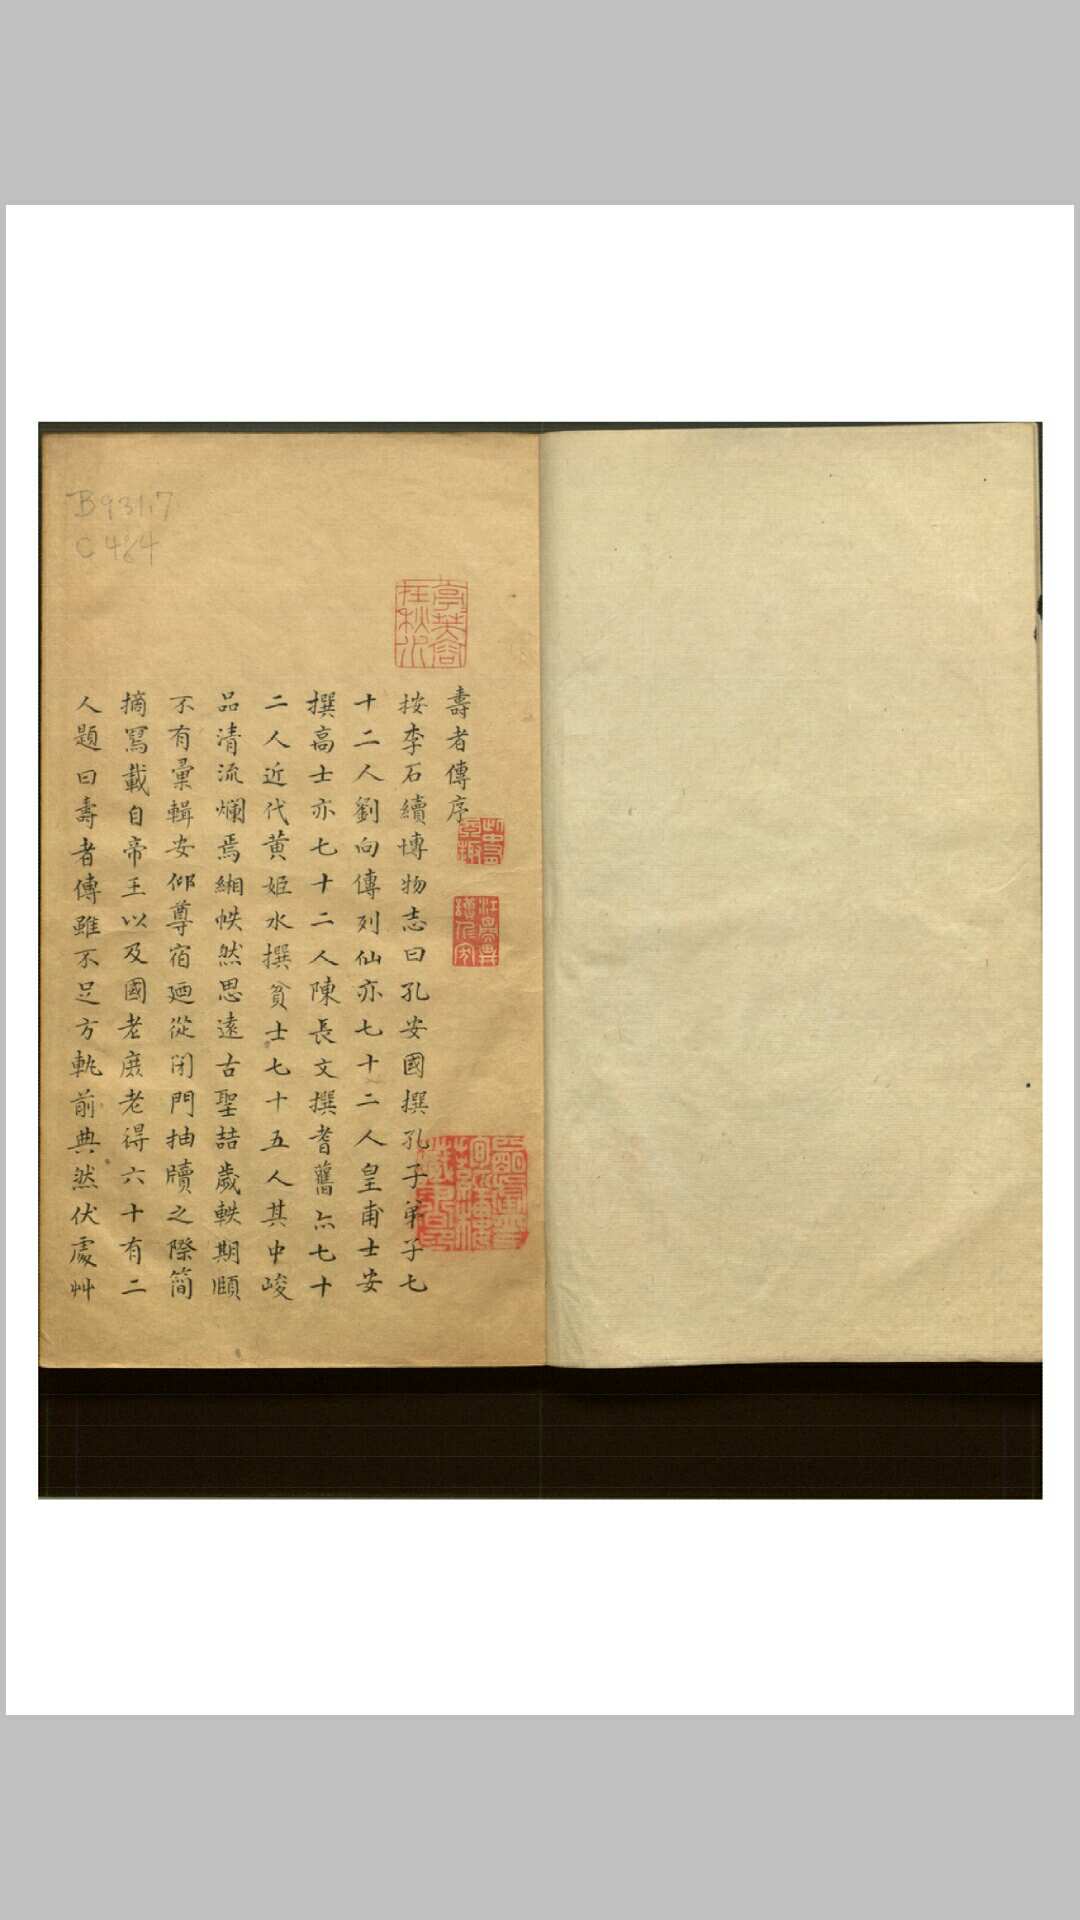 壽者傳序
按李石續博物志曰孔安國撰孔子弟子七
十二人劉向傳列仙亦七十二人皇甫士安
撰高士亦七十二人陳長文撰耆舊亦七十
二人近代黄姬水撰貧士七十五人其中峻
品清流爛焉緗帙然思遠古聖喆歲軼期頤
不有彚輯安仰尊宿廼從閉門抽牘之際簡
摘寫載自帝王以及國老庶老得六十有二
人題曰壽者傳雖不足方軌前典然伏處艸
B931.7
C464